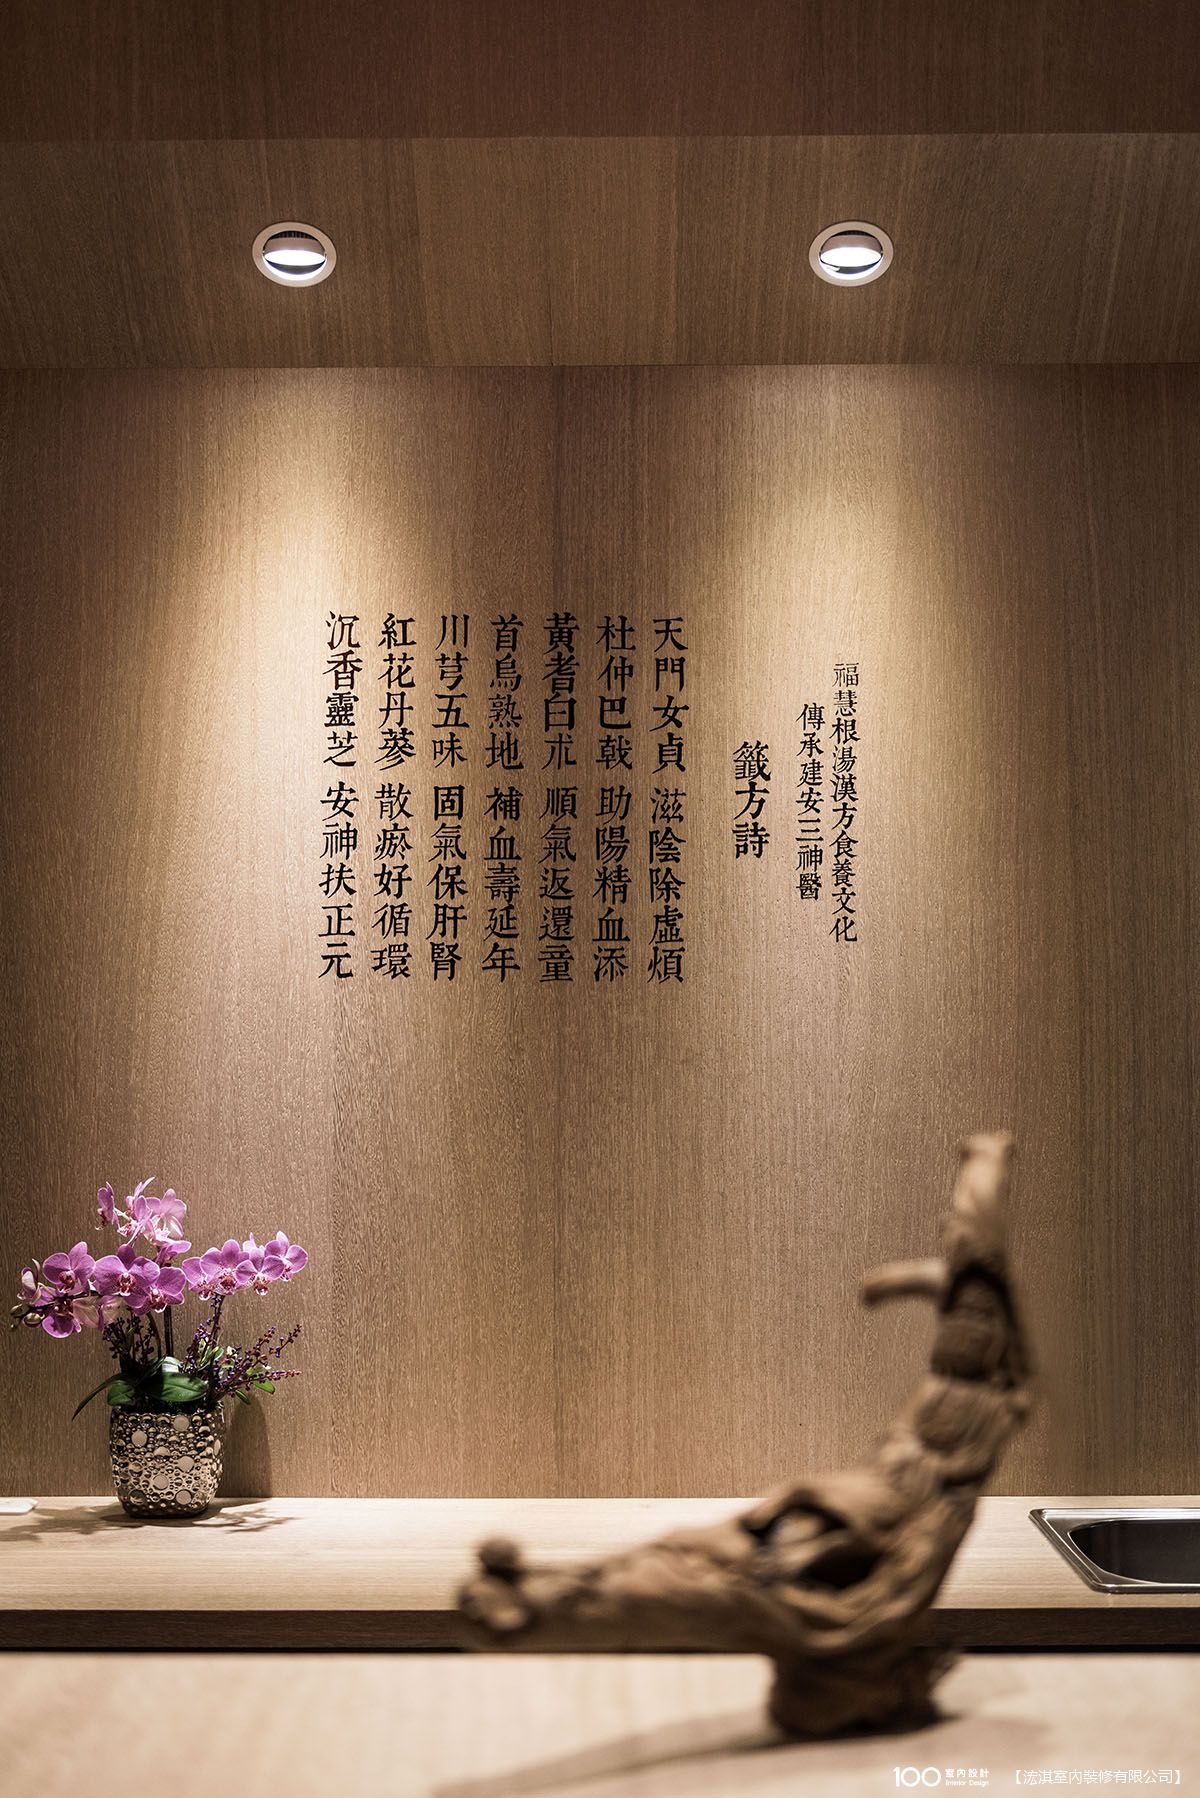 福慧根湯漢方食養文化
傳承建安三神醫
籤方詩
天門女貞 滋陰除虛煩
杜仲巴戟 助陽精血添
黃耆白朮 順氣返還童
首烏熟地 補血壽延年
川芎五味 固氣保肝腎
紅花丹蔘 散瘀好循環
沉香靈芝 安神扶正元
100 室內設計 Interior Design
【浤淇室內裝修有限公司】